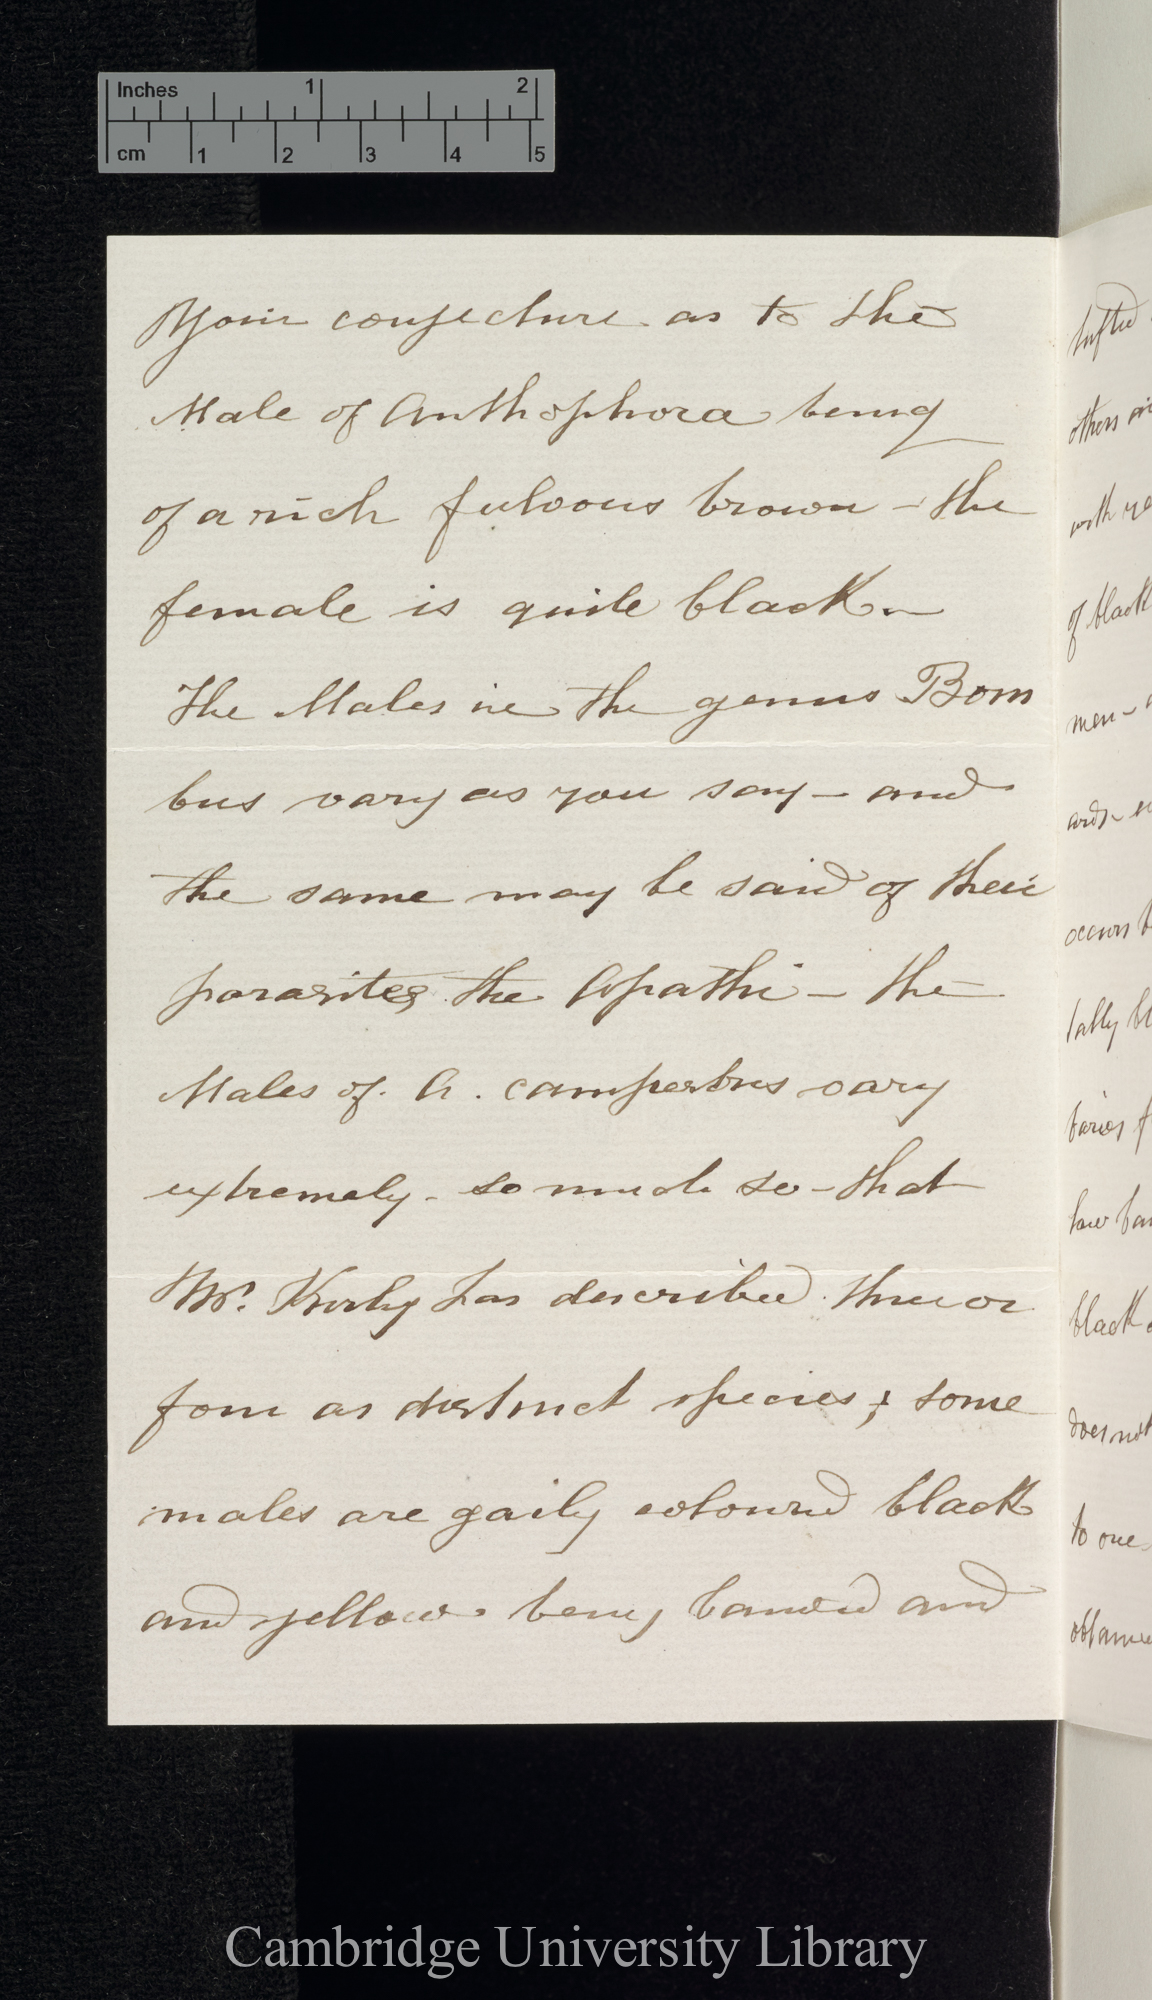 Inches 1 2
cm 1 2 3 4 5
Your conjecture as to the
Male of Anthophora being
of a rich fulvous brown – the
female is quite black –
The Males in the genus Bom
bus vary as you say – and
the same may be said of their
parasites the Apathi – the
Males of A. campestris vary
extremely – so much so – that
Mr. Kirby has described three or
four as distinct species; some
males are gaily coloured black
and yellow. being banded and
tufted
others
with
of black
men –
ards –
occurs
tally bl
low
black
does not
to one
Cambridge University Library